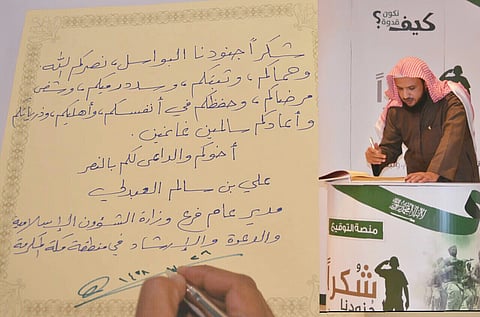 شكراً جنودنا البواسل، نصركم الله،
وحماكم، وثبتكم، وسدد رميكم، وشفى
مرضاكم، وحفظكم في أنفسكم، وأهليكم، وذرياتكم
وأعادكم سالمين غانمين.
أخوكم والداعي لكم بالنصر
علي بن سالم العبدلي
مدير عام فرع وزارة الشؤون الإسلامية
والدعوة والإرشاد في منطقة مكة المكرمة
١٤٣٨
كيف
تكون
قدوة
؟
منصة التوقيع
شكراً
جنودنا